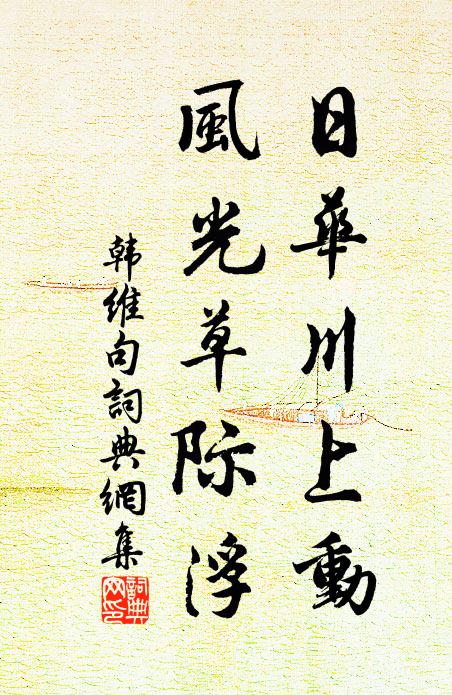 日華川上動
風光草际浮
韩维句詞典網集
詞典网印